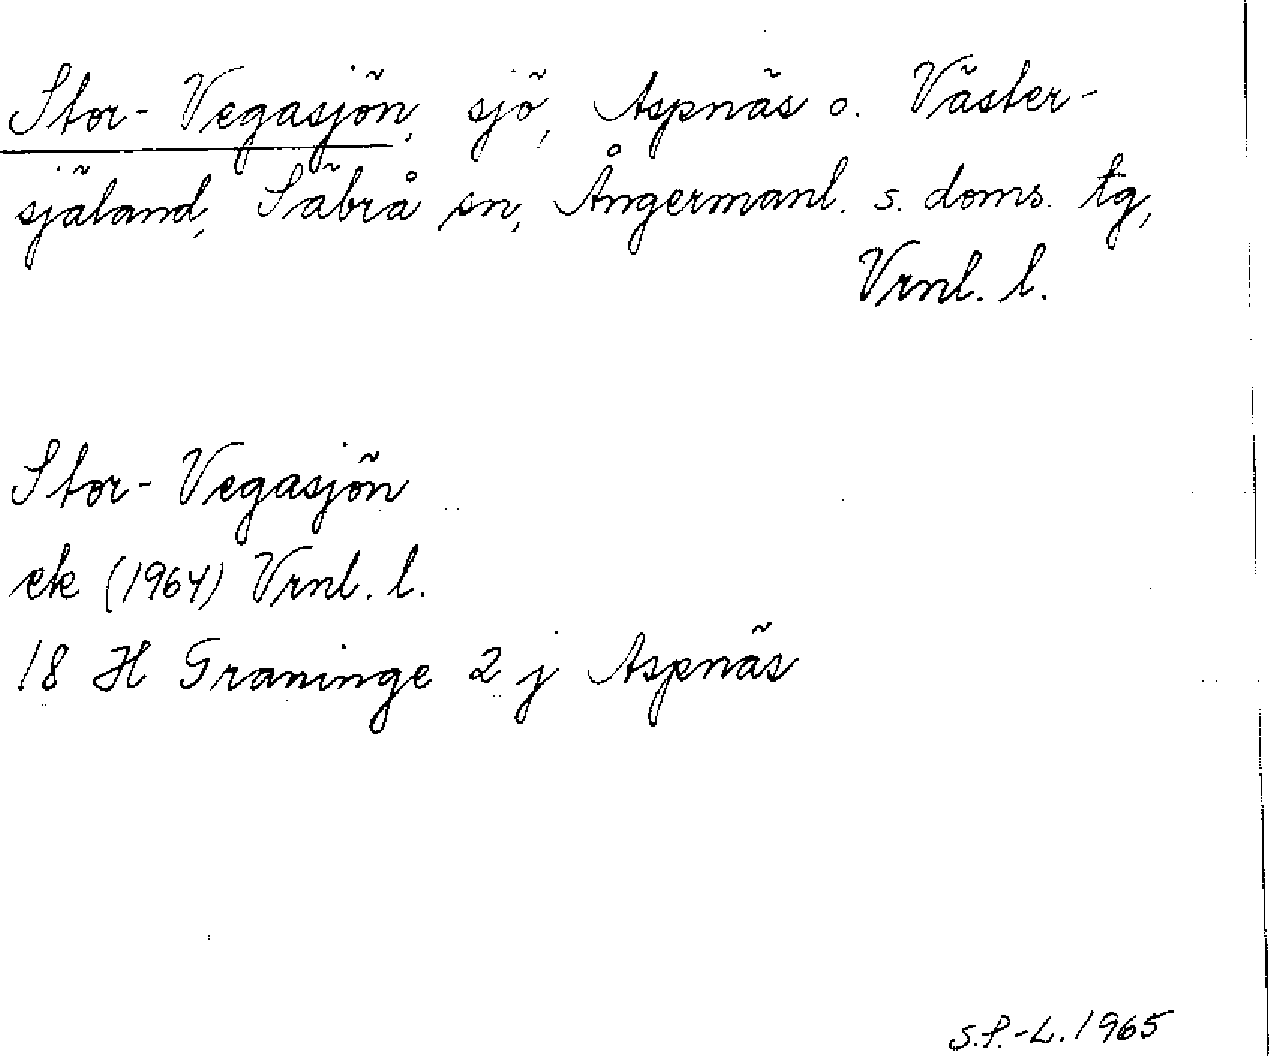 Stor-Vegasjön, sjö, Aspnäs o. Väster-
själand, Säbrå sn, Ångermanl. s. doms. tg,
Vrnl. l.
Stor-Vegasjön
ek (1964) Vrnl. l.
18 H Graninge 2 j Aspnäs
S.P.-L. 1965